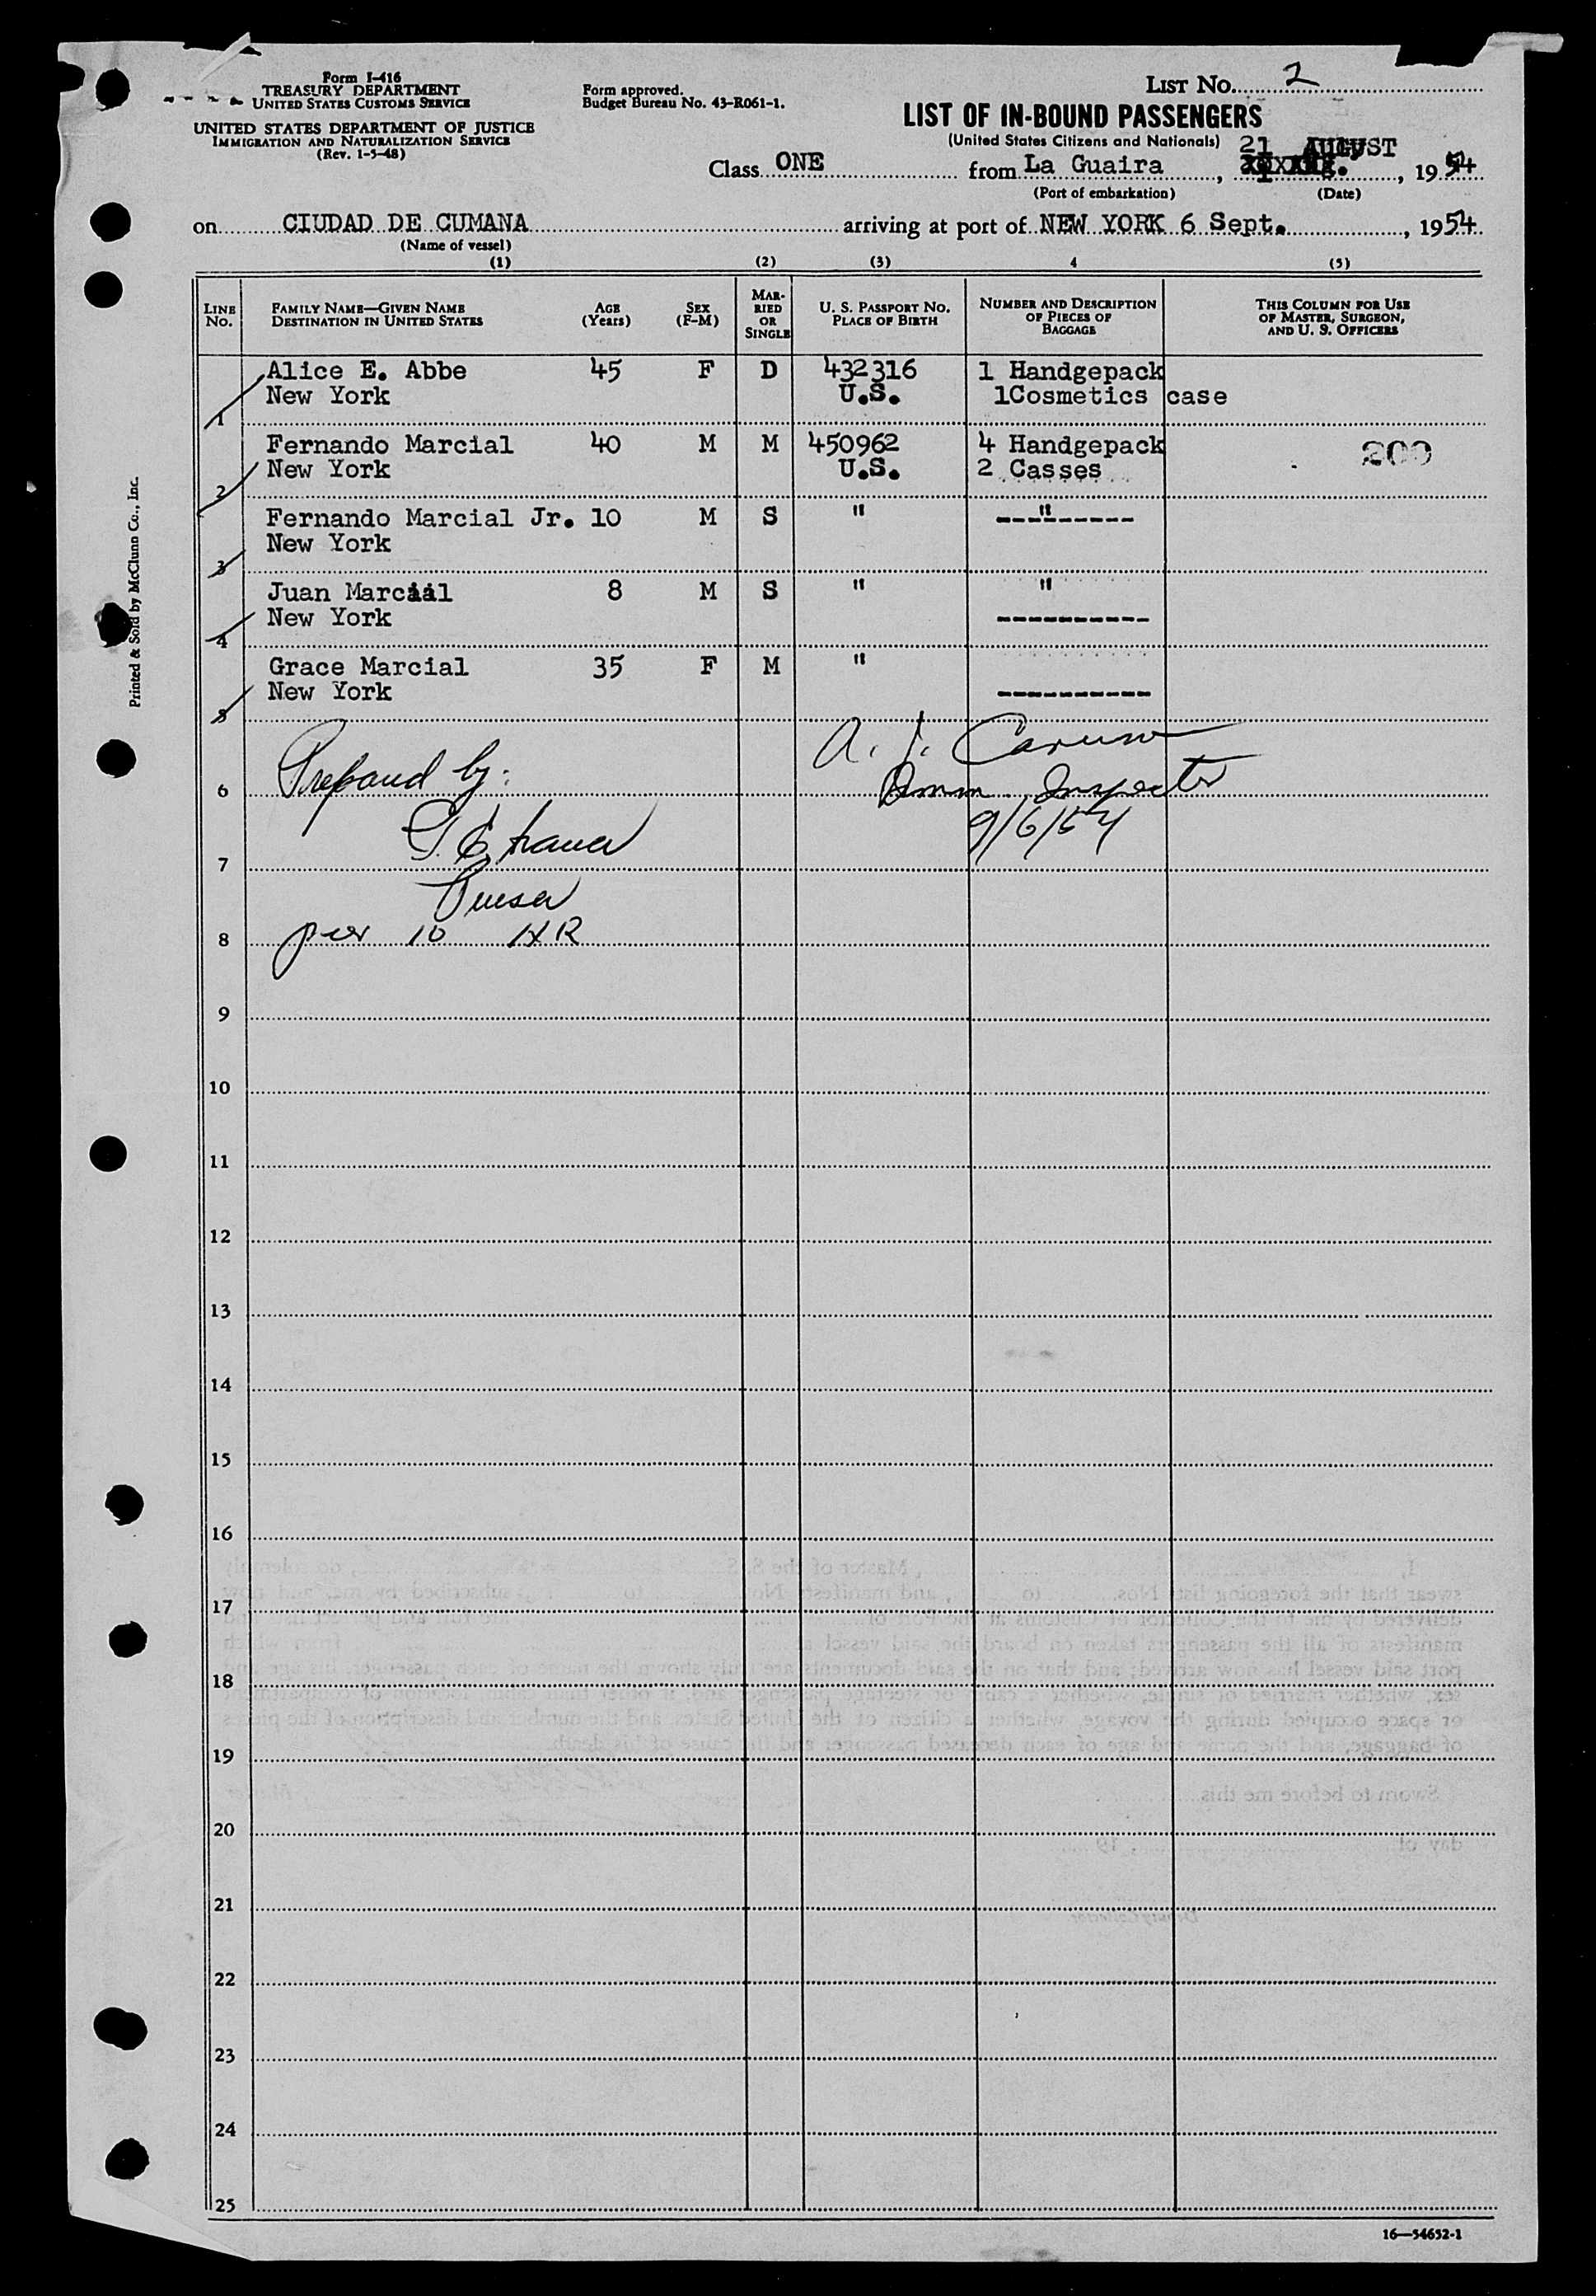 Form I-416
TREASURY DEPARTMENT
UNITED STATES CUSTOMS SERVICE
UNITED STATES DEPARTMENT OF JUSTICE
IMMIGRATION AND NATURALIZATION SERVICE
(Rev. 1-5-48)
Form approved.
Budget Bureau No. 43-R061-1.
LIST No. 2
LIST OF IN-BOUND PASSENGERS
(United States Citizens and Nationals)
Class ONE from La Guaira, 21 AUGUST, 1954
(Port of embarkation) (Date)
on CIUDAD DE CUMANA arriving at port of NEW YORK 6 Sept., 1954
(Name of vessel)
(1) (2) (3) 4 (5)
LINE No. FAMILY NAME—GIVEN NAME DESTINATION IN UNITED STATES AGE (Years) SEX (F-M) MARRIED OR SINGLE U. S. PASSPORT No. PLACE OF BIRTH NUMBER AND DESCRIPTION OF PIECES OF BAGGAGE THIS COLUMN FOR USE OF MASTER, SURGEON, AND U. S. OFFICERS
Alice E. Abbe 45 F D 432316 1 Handgepack
New York U.S. 1Cosmetics case
1
Fernando Marcial 40 M M 450962 4 Handgepack 200
New York U.S. 2 Casses
2
Fernando Marcial Jr. 10 M S " "
New York
3
Juan Marciál 8 M S " "
New York
4
Grace Marcial 35 F M "
New York
5
A. J. Caruso
Prepared by:
Imm. Inspector
6
9/6/54
7
Purser
8 pier 10 NR
9
10
11
12
13
14
15
16
17
18
19
20
21
22
23
24
25
16—54652-1
Printed & Sold by McClunn Co., Inc.